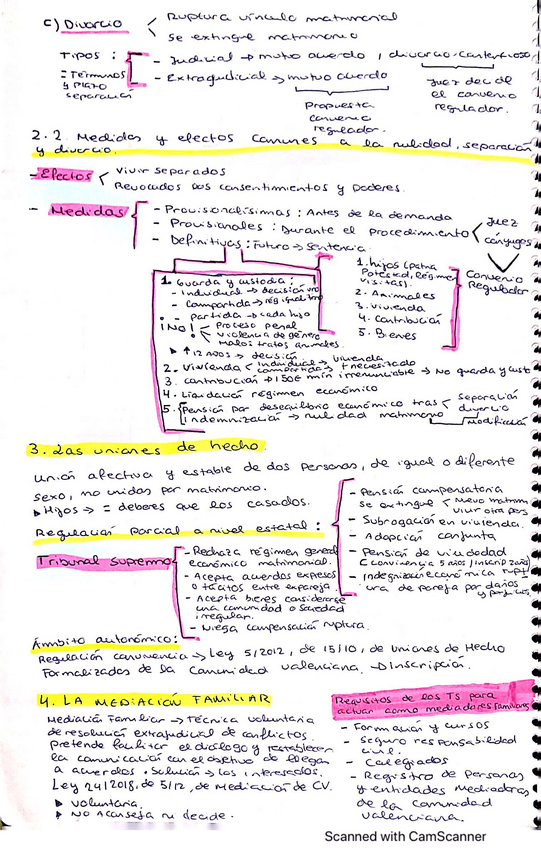 c) Divorcio < Ruptura vínculo matrimonial
Se extingue matrimonio
Tipos:
= Términos y plazo separación
- Judicial → mutuo acuerdo / divorcio contencioso
- Extrajudicial → mutuo acuerdo
Juez decide el convenio regulador.
Propuesta convenio regulador.
2.2 Medidas y efectos comunes a la nulidad, separación
y divorcio.
- Efectos < Vivir separados
Revocados los consentimientos y poderes.
- Medidas
- Provisionalísimas: Antes de la demanda
- Provisionales: Durante el procedimiento < Juez
cónyuges
- Definitivas: Futuro → Sentencia
Convenio Regulador
1. Guarda y custodia:
- individual → decisión
- Compartida → rég igual
- partida → cada hijo
¡NO! Proceso penal
Violencia de género
Malos tratos animales.
▸ ↑12 años → decisión
2. Vivienda < individual → vivienda
compartida → + necesitado
3. contribución → 150€ mín irrenunciable → No guarda y cust
4. Liquidación régimen económico
5. Pensión por desequilibrio económico tras < Separación
divorcio
Indemnización → nulidad matrimonio
Modificación
1. hijos (patria Potestad, Régimen visitas).
2. Animales
3. Vivienda
4. Contribución
5. Bienes
3. Las uniones de hecho.
Unión afectiva y estable de dos personas, de igual o diferente
sexo, no unidas por matrimonio.
▸ Hijos → = deberes que los casados.
Regulación parcial a nivel estatal:
- Pensión compensatoria
se extingue < nuevo matrim
vivir otra pers
- Subrogación en vivienda.
- Adopción conjunta
- Pensión de viudedad
(convivencia 5 años / inscrip 2 años)
- Indemnización económica rupt
ura de pareja por daños
y perjuicios
Tribunal Supremo
- Rechaza régimen general
económico matrimonial.
- Acepta acuerdos expresos
o tácitos entre expareja.
- Acepta bienes considerarse
una comunidad o sociedad
irregular.
- Niega compensación ruptura.
Ámbito autonómico:
Regulación convivencia → Ley 5/2012, de 15/10, de Uniones de Hecho
Formalizadas de la Comunidad Valenciana. → Inscripción.
4. LA MEDIACIÓN FAMILIAR
Mediación Familiar → Técnica voluntaria
de resolución extrajudicial de conflictos.
Pretende facilitar el diálogo y restablecer
la comunicación con el objetivo de llegar
a acuerdos. Solución → los interesados.
Ley 24/2018, de 5/12, de Mediación de CV.
▸ Voluntaria.
▸ No aconseja ni decide.
Requisitos de los TS para
actuar como mediadores familiares
- Formación y cursos
- Seguro responsabilidad
civil.
- Colegiados
- Registro de Personas
y entidades Mediadoras
de la Comunidad
Valenciana.
Scanned with CamScanner